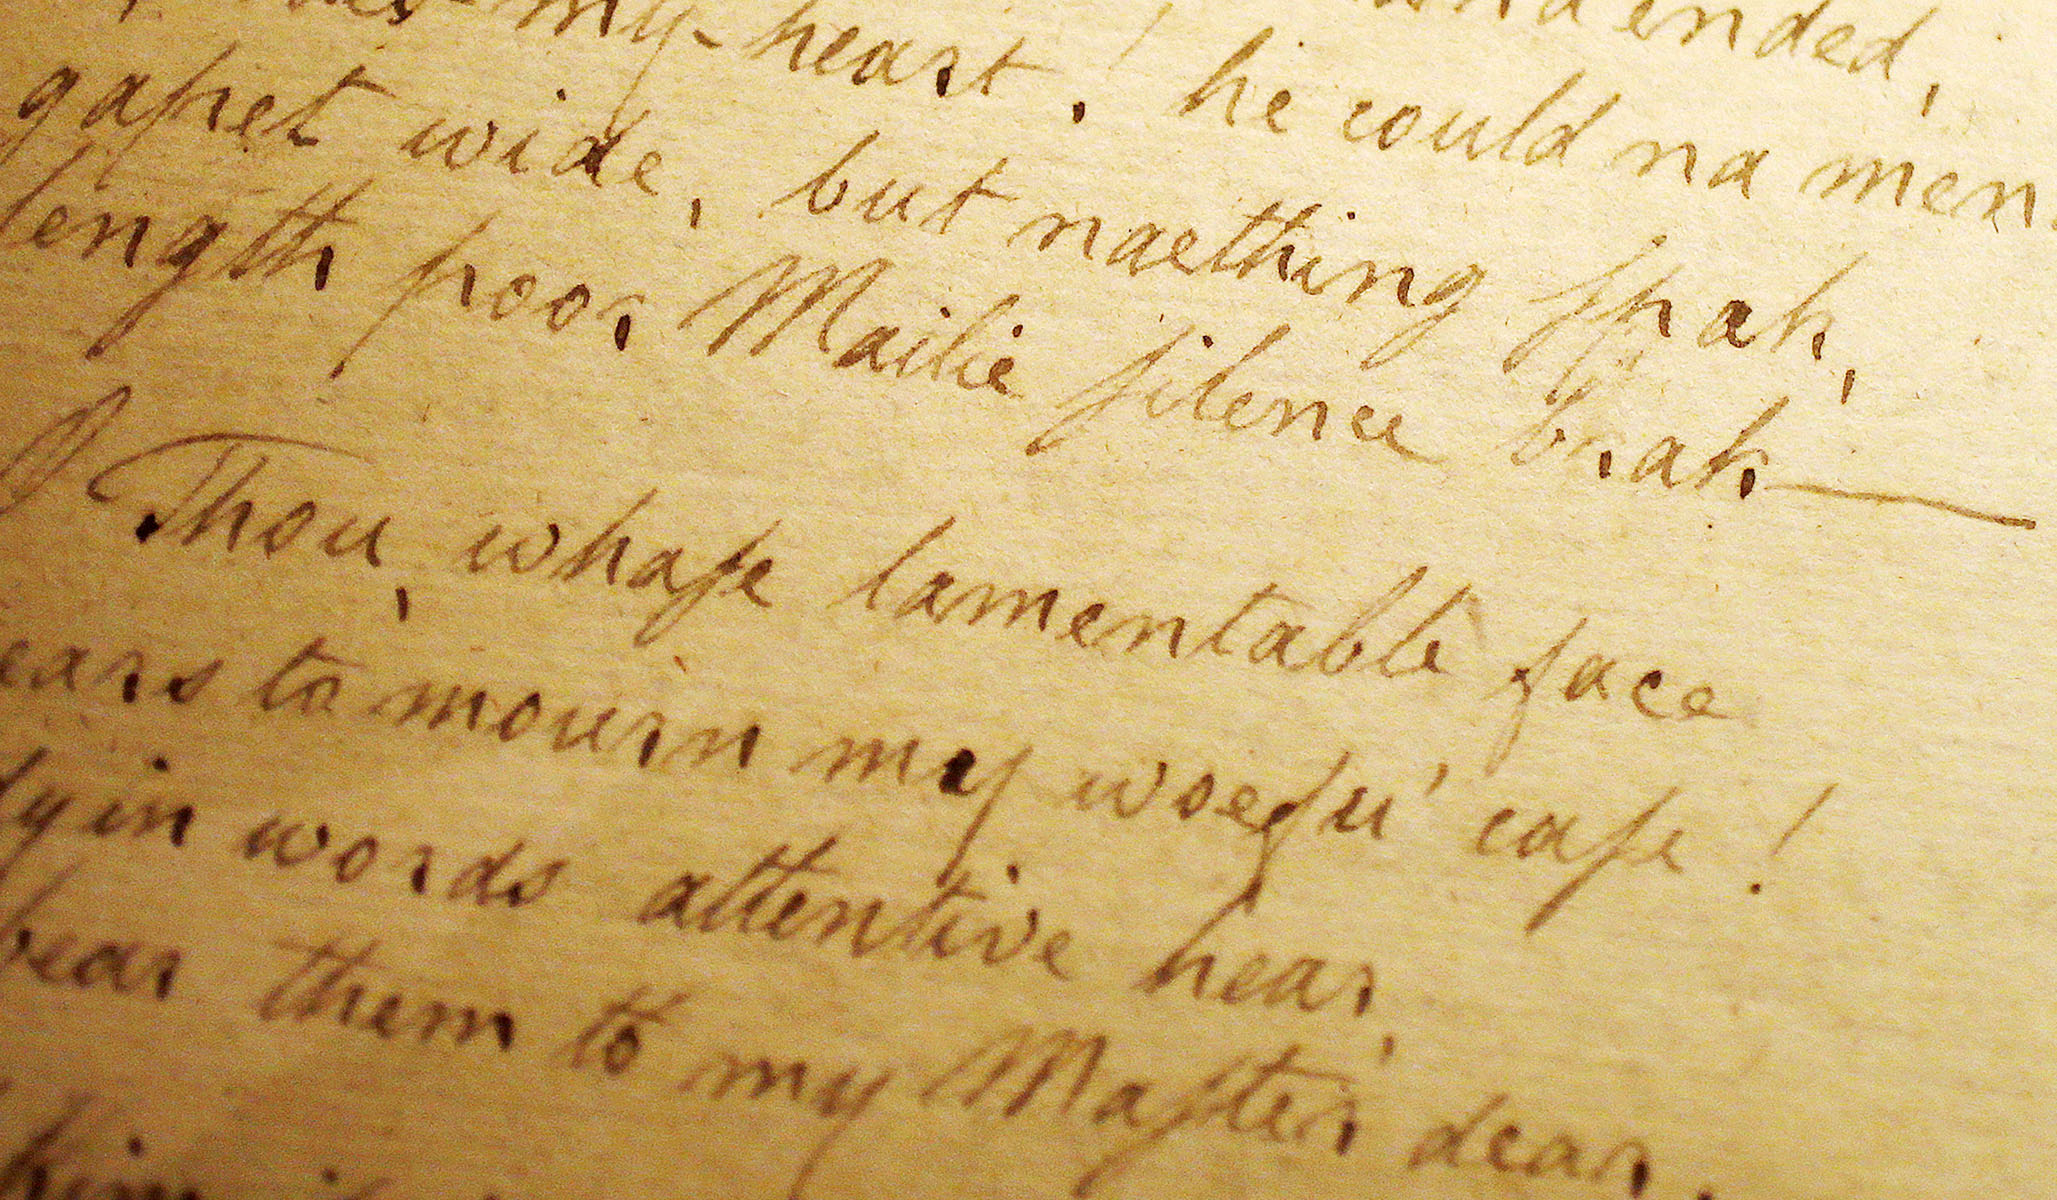 ended,
my-heart! he could na men
gapet wide, but naething ſpak,
length poor Mailie ſilence brak—
O Thou, whaſe lamentable face
ears to mourn my woefu' caſe!
dyin words attentive hear,
bear them to my Maſter dear.
him